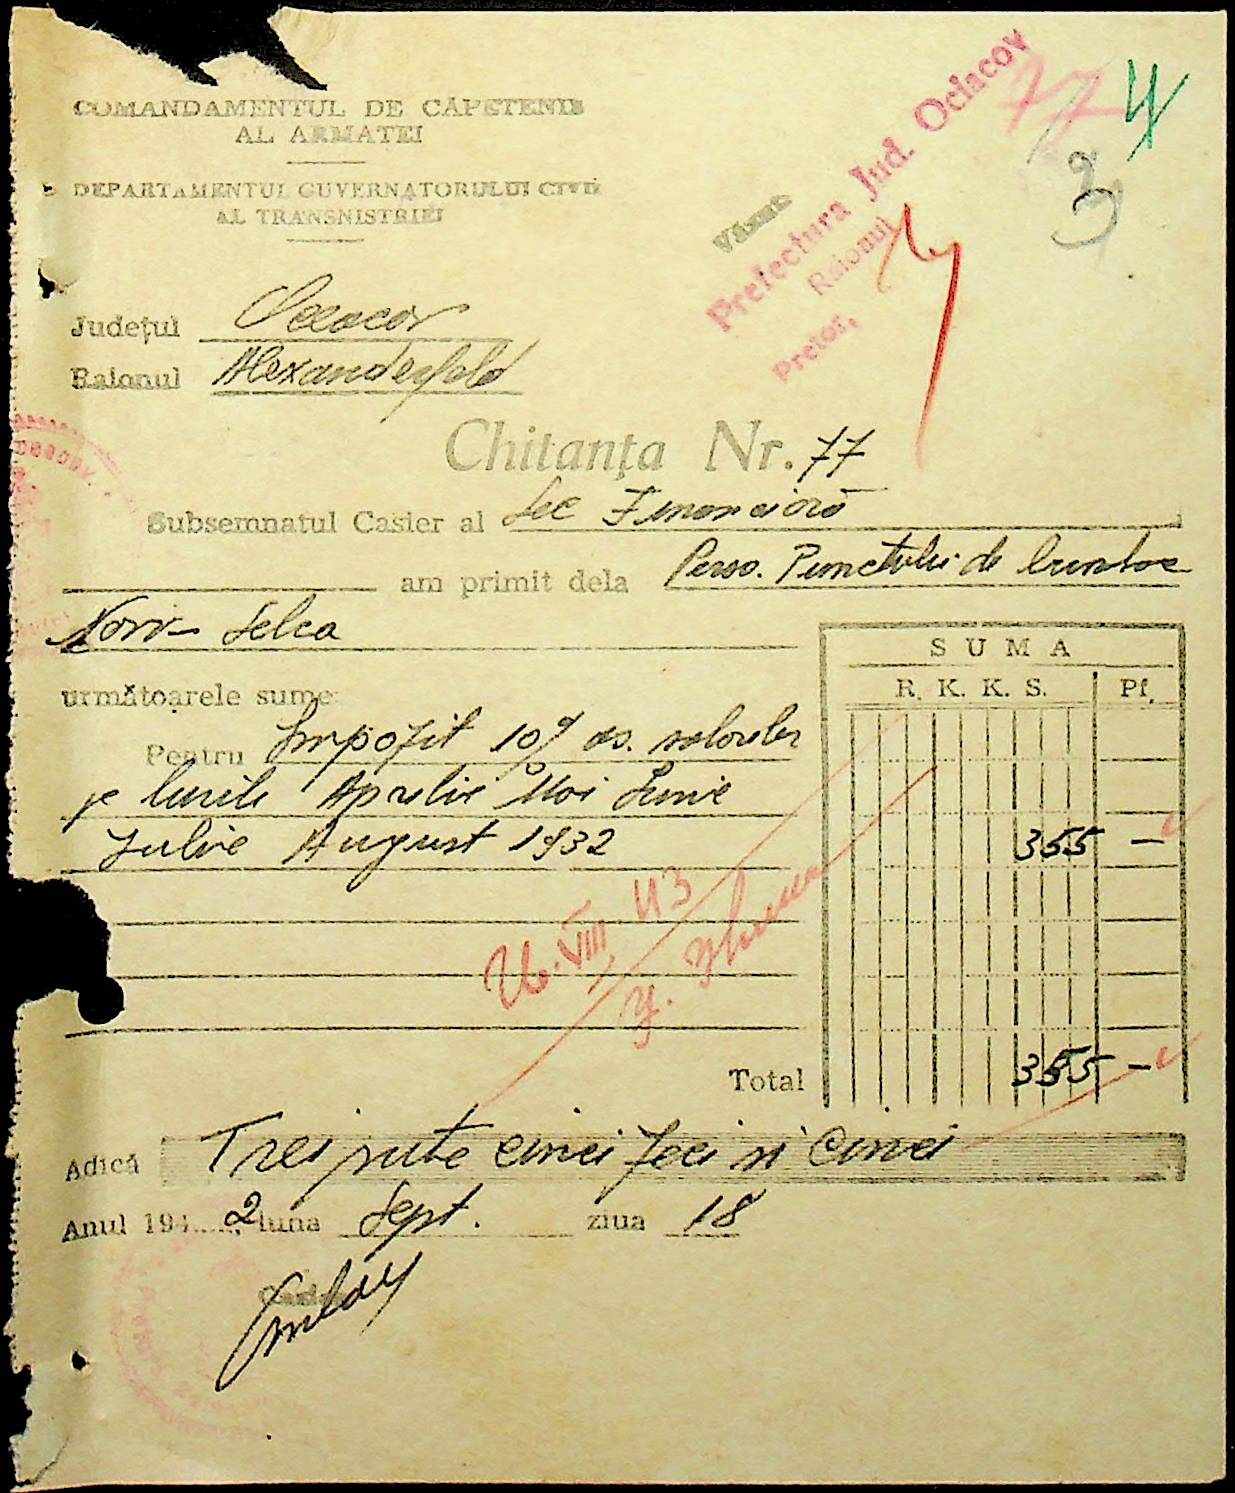 COMANDAMENTUL DE CAPETENIE
AL ARMATEI
DEPARTAMENTUL GUVERNATORULUI CIVIL
AL TRANSNISTRIEI
Văzut
Prefectura Jud. Ociacov
Raionul
Pretor,
77
4
Județul Oceacov
Raionul Alexanderfeld
Chitanța Nr. 77
Subsemnatul Casier al Sec Financiară
am primit dela Perso. Punctului de
Novo Selca
următoarele sume:
SUMA
R. K. K. S. Pf.
Pentru Impozit 10% as. salorilor
pe lunile Aprilie Mai Iunie
Iulie August 1932 355 —
26.VIII.43
Total 355 —
Adică Trei sute cinci zeci si cinci
Anul 194 2 luna Sept. ziua 18
Casier